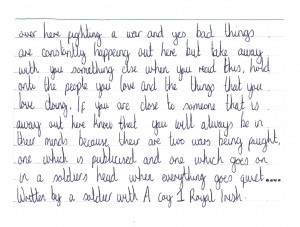 over here fighting a war and yes bad things
are constantly happening out here but take away
with you something else when you read this, hold
onto the people you love and the things that you
love doing. If you are close to someone that is
away out here know that you will always be in
their minds because their are two wars being fought,
one which is publicised and one which goes on
in a soldiers head when everything goes quiet....
Written by a soldier with A coy 1 Royal Irish.